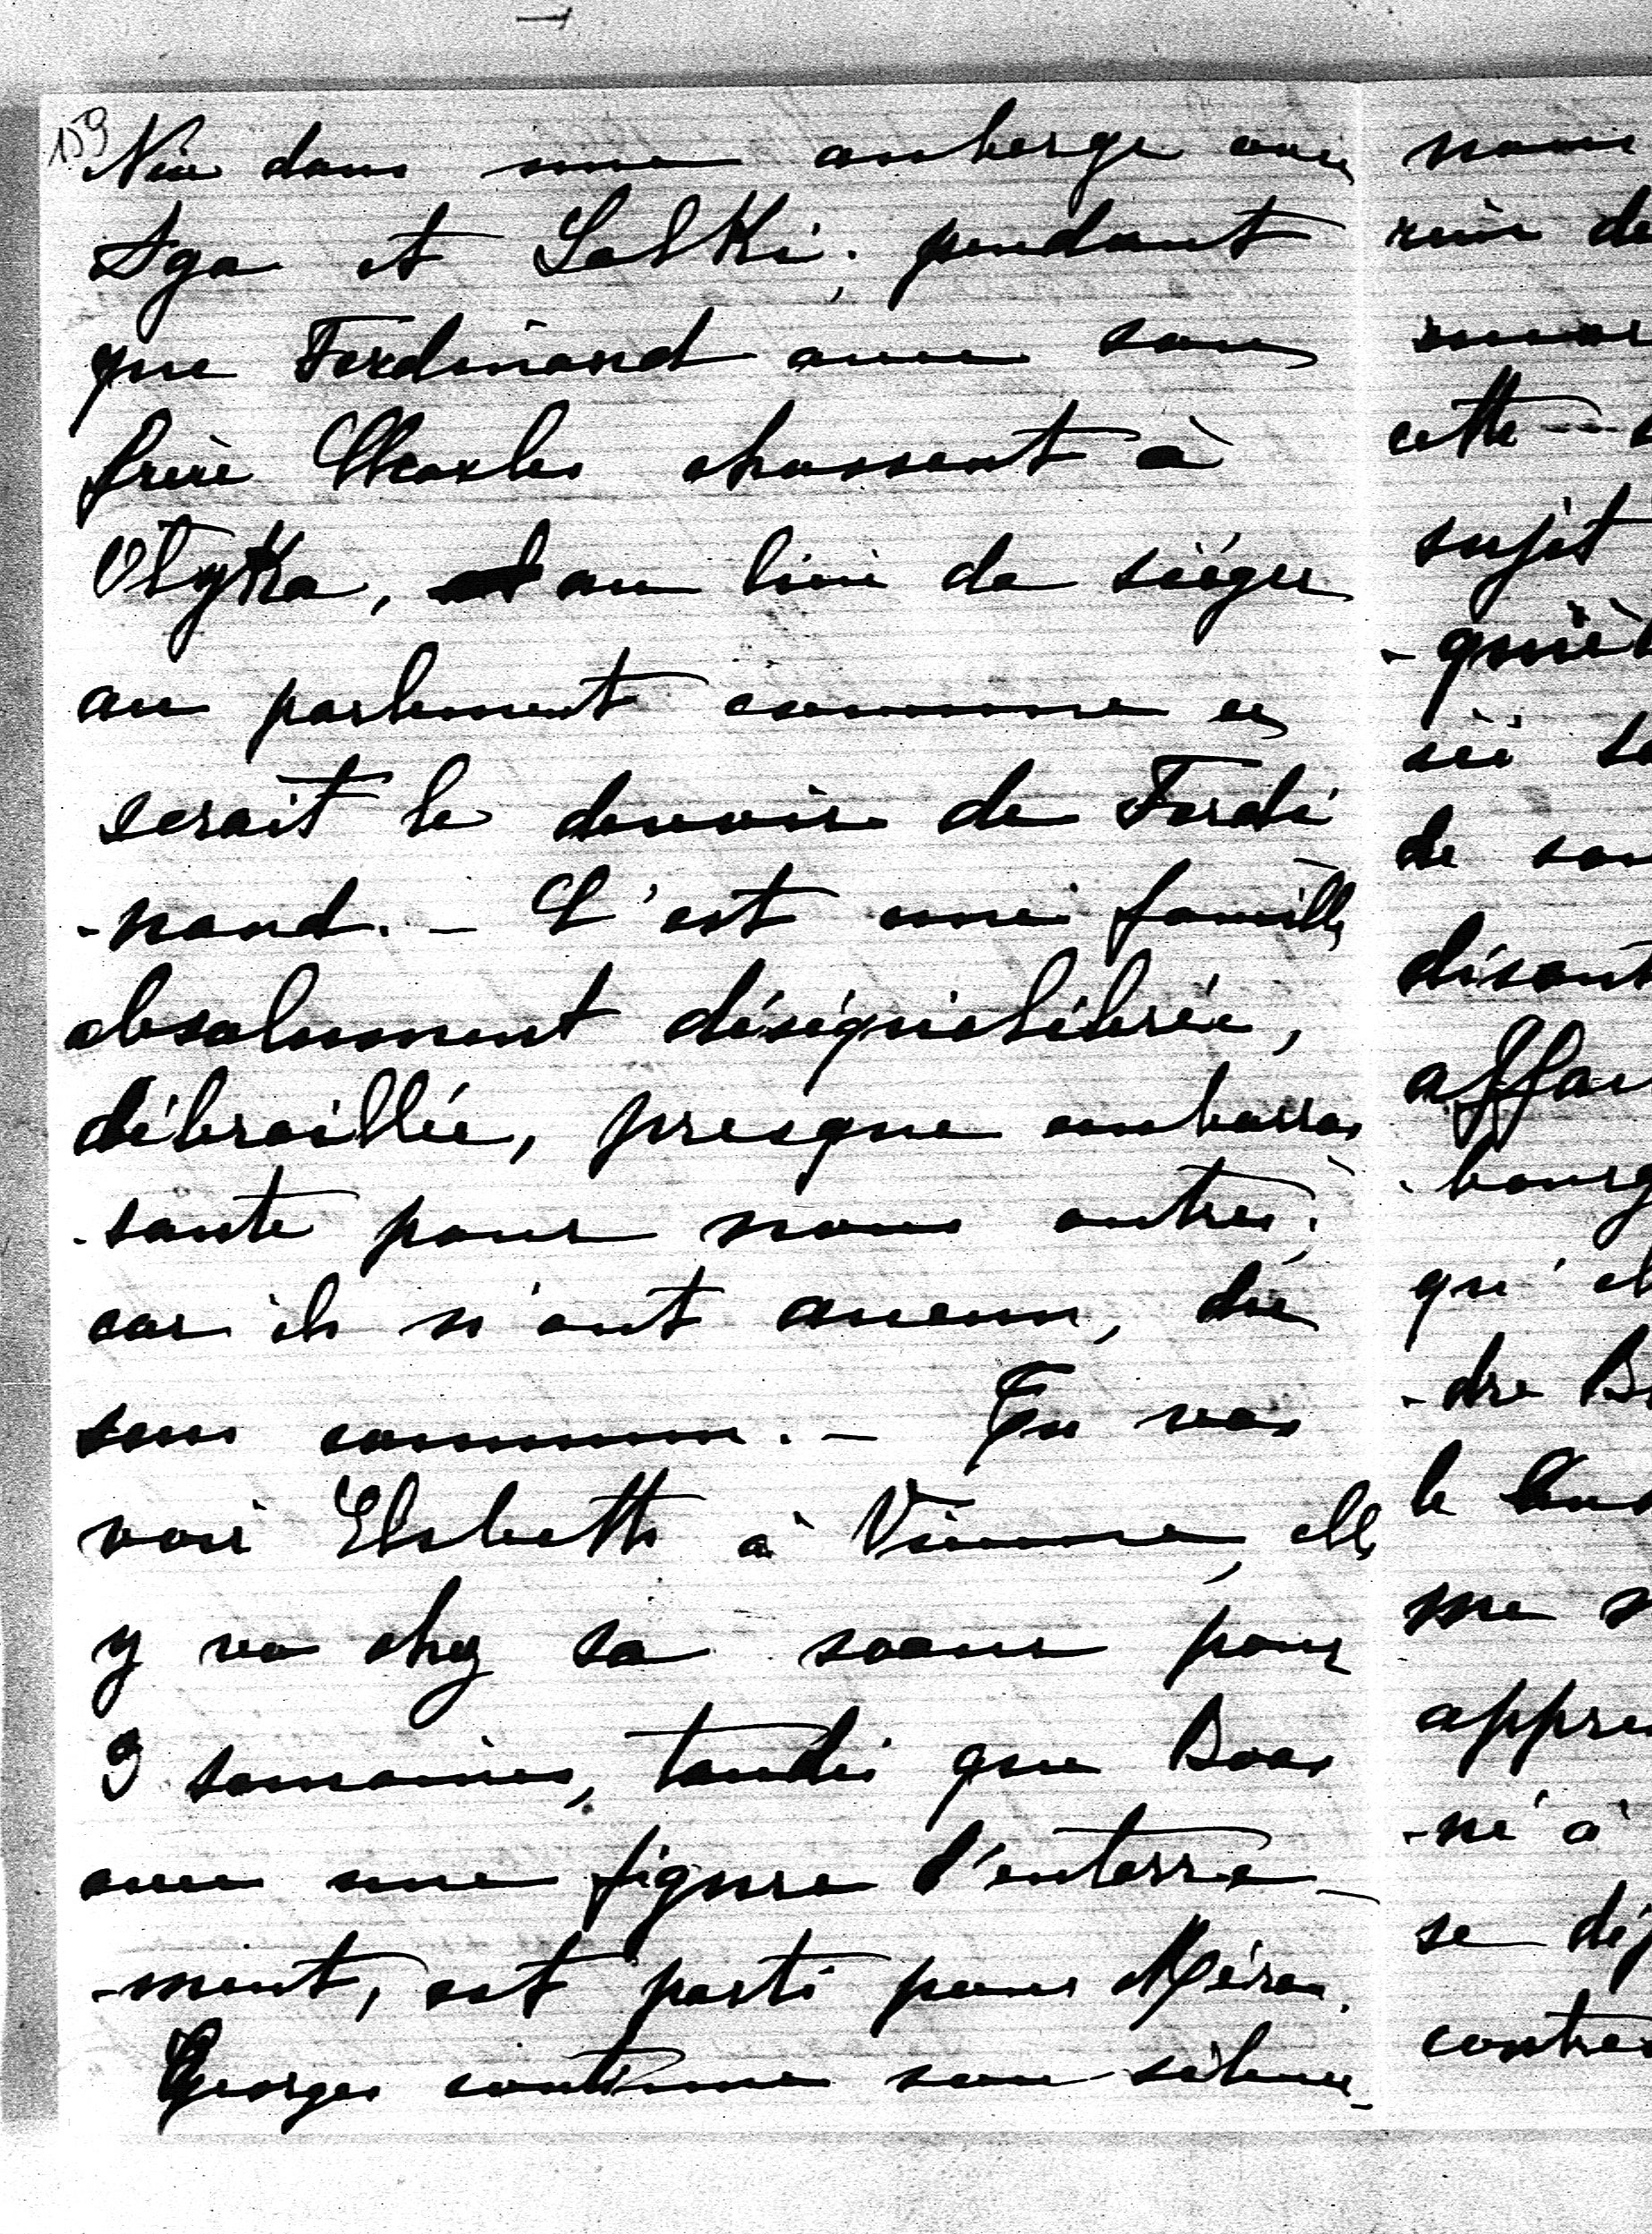 159
dans une auberge avec
Aga et Salki; pendant
que Ferdinand avec son
frère Charles chassent à
Olyka, au lieu de siéger
au parlement comme ce
serait le devoir de Ferdi
-nand. - C'est une famille
absolument déséquilibrée,
débraillée, presque embarras
-sante pour nous autres;
car ils n'ont aucun, du
sens commun. - Tu vas
voir Elsbeth à Vienne, elle
y va chez sa soeur pour
3 semaines, tandis que Boas
avec une figure d'enterre-
-ment, est parti pour Méran.
Georges continue son silence
nous
cette
sujet
de son
disant
-dre
le
me
-né à
se